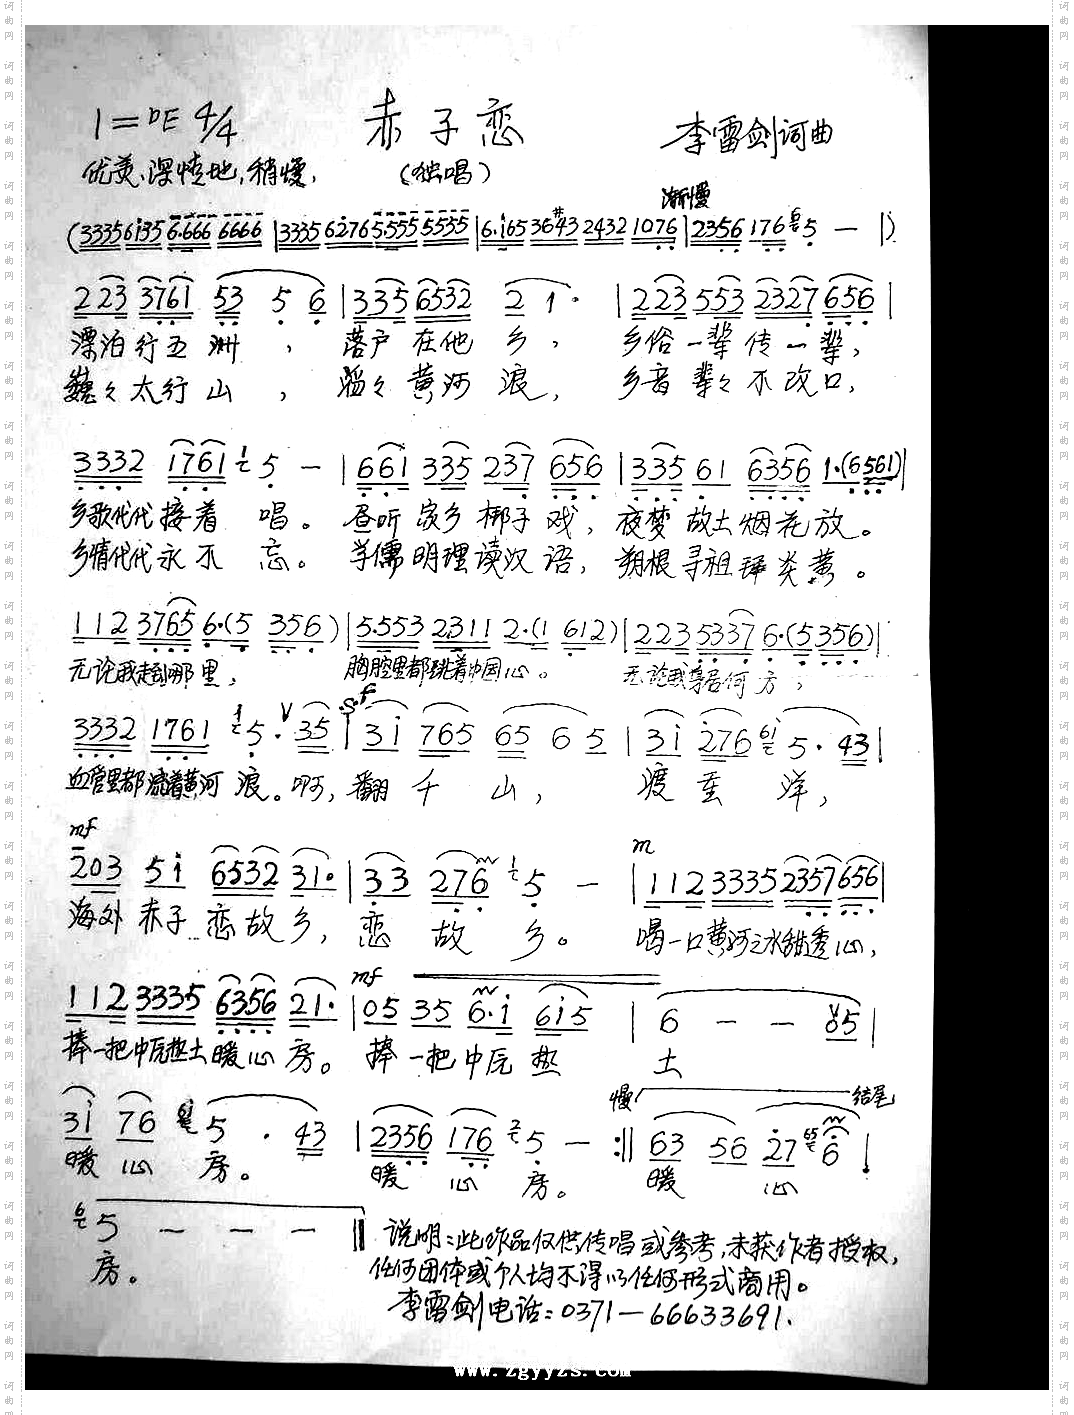 1=ᵇE 4/4
赤子恋
李雷剑词曲
优美、深情地,稍慢,
(独唱)
渐慢
(3335 6i35 6·666 6666 |3335 6276 5555 5555 |6·i65 36#43 2432 1076 |2356 176 5 — |)
223 3761 53 5 6 |335 6532 2 1· |223 553 2327 656 |
漂泊行五洲, 落户在他乡, 乡俗一辈传一辈,
巍々太行山, 滔々黄河浪, 乡音辈々不改口,
3332 1761 5 — |661 335 237 656 |335 61 6356 1·(6561)|
乡歌代代接着唱。 昼听家乡梆子戏, 夜梦故土烟花放。
乡情代代永不忘。 学儒明理读汉语, 朔根寻祖拜炎黄。
112 3765 6·(5 356) |5·553 2311 2·(1 612) |223 5337 6·(5356)|
无论我走到哪里, 胸腔里都跳着中国心。 无论我身居何方,
s.f
3332 1761 5· V 35 |3i 765 65 6 5 |3i 276 5· 43|
血管里都流着黄河浪。啊, 翻千山, 渡重洋,
mf
m
203 5i 6532 31· |33 276 5 — |112 3335 2357 656|
海外赤子恋故乡, 恋故乡。 喝一口黄河之水甜透心,
mf
112 3335 6356 21· |05 35 6·i 6i5 |6 — — 05|
捧一把中原热土暖心房。 捧一把中原热土
慢
结尾
3i 76 5 · 43 |2356 176 5 — :‖ 63 56 27 6 |
暖心房。 暖心房。 暖心
5 — — — ‖
房。
说明:此作品仅供传唱或参考,未获作者授权,
任何团体或个人均不得以任何形式商用。
李雷剑电话:0371—66633691.
www.zgyyzs.com